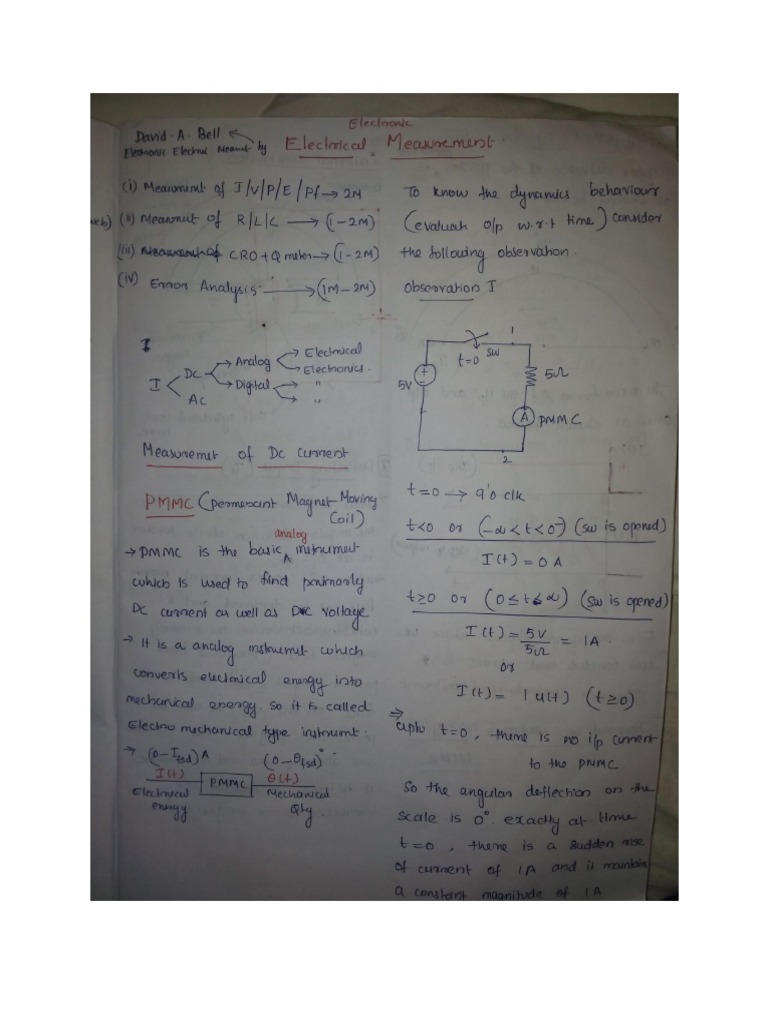 Electronic
David. A. Bell
Electrical Measurement.
by
(i) Measurment of I/V/P/E/Pf → 2M
(ii) Measurmeut of R/L/C → (1-2M)
(iii) Measurement of CRO + Q meter → (1-2M)
(iv) Error Analysis → (1M-2M)
I
I
DC
AC
Analog
Digital
Electrical
Electronics.
"
"
Measuremet of Dc current
PMMC (permanant Magnet Moving
Coil)
analog
→ PMMC is the basic ^ instrument
which is used to find primarily
DC current as well as DC voltage
→ It is a analog instrument which
converts electrical energy into
mechanical energy so it is called
Electro mechanical type instrumt.
→ (0-Ifsd)A (0-θfsd)°
I(t) PMMC θ(t)
Electrical Mechanical
energy Qty
To know the dynamics behaviour
(evaluate o/p w.r.t time) consider
the following observation.
Observation I
1
t=0 SW
+
-
5V
5Ω
A PMMC
2
t=0 → 9'o clk
t<0 or (-∞<t<0⁻) (sw is opened)
I(t) = 0 A
t≥0 or (0≤t≤∞) (sw is opened)
I(t) = 5V/5Ω = 1A
or
I(t) = 1 u(t) (t≥0)
⇒
upto t=0, there is no i/p current
to the PMMC
So the angular deflection on the
scale is 0° exactly at time
t=0, there is a sudden rise
of current of 1A and it maintain
a constant magnitude of 1A